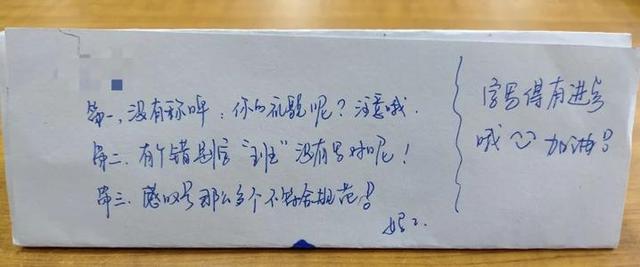 第一,没有称呼:你的礼貌呢?注意哦.
第二、有个错别字"班"没有写对呢!
第三、感叹号那么多个不符合规范!
妈
字写得有进步
哦 加油!